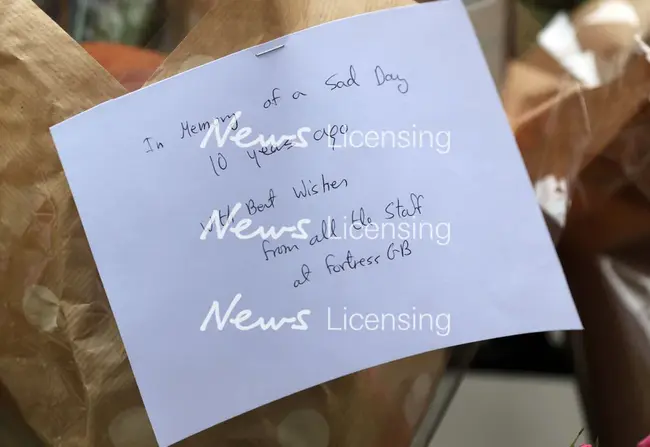 In Memory of a Sad Day
10 years ago
News Licensing
With Best Wishes
from all the Staff
News Licensing
at Fortress GB
News Licensing